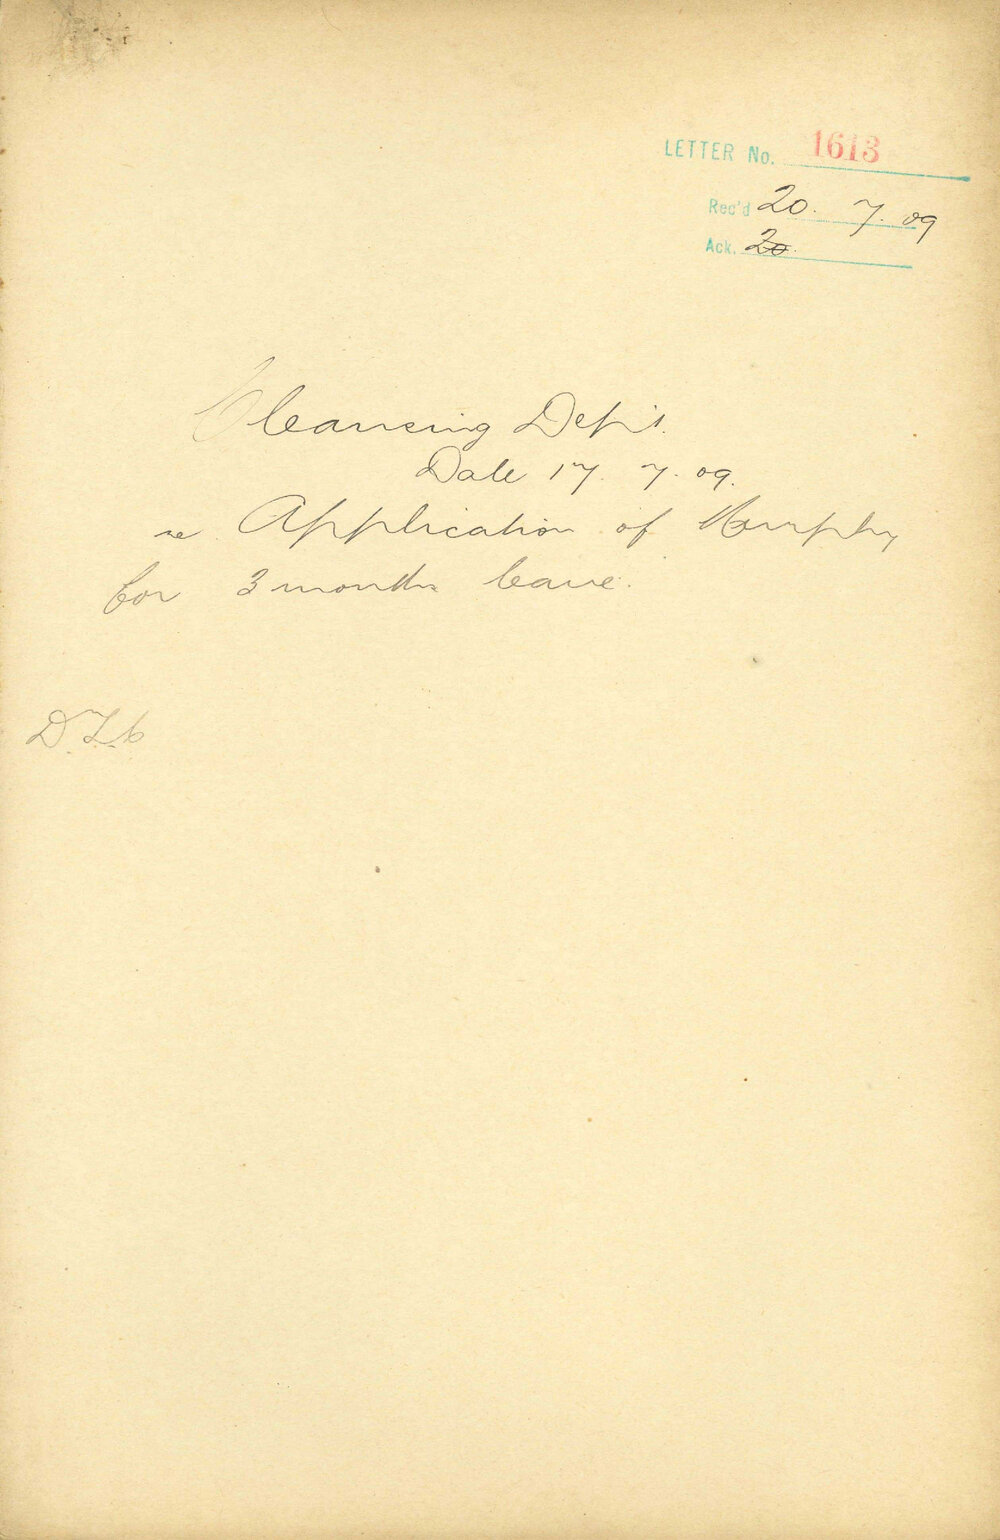 LETTER No. 1613
Rec'd 20. 7. 09
Ack. 20.
Cleansing Dep't.
Date 17. 7. 09.
re Application of Murphy
for 3 months leave.